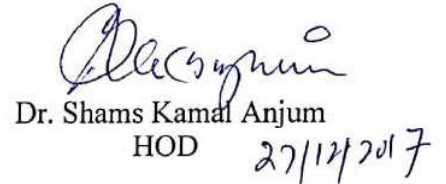 Dr. Shams Kamal Anjum
HOD
27/12/2017